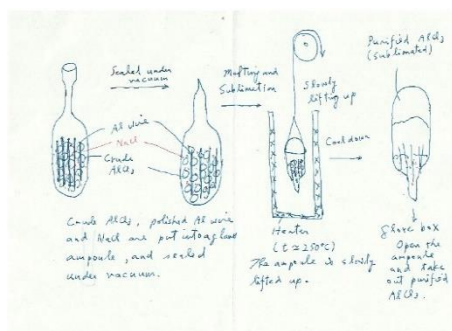 Sealed under
vacuum
Al wire
NaCl
Crude
AlCl3
Crude AlCl3, polished Al wire
and NaCl are put into a glass
ampoule, and sealed
under vacuum.
Melting and
Sublimation
Slowly
lifting up
Heater
(t ≈ 250°C)
The ampoule is slowly
lifted up.
Cool down
Purified AlCl3
(sublimated)
Glove box
Open the
ampoule
and take
out purified
AlCl3.